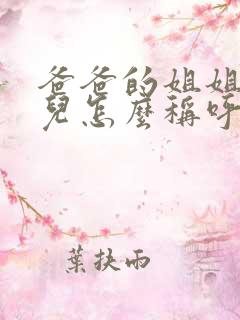 爸爸的姐姐
兒怎麼稱呼
葉挾雨